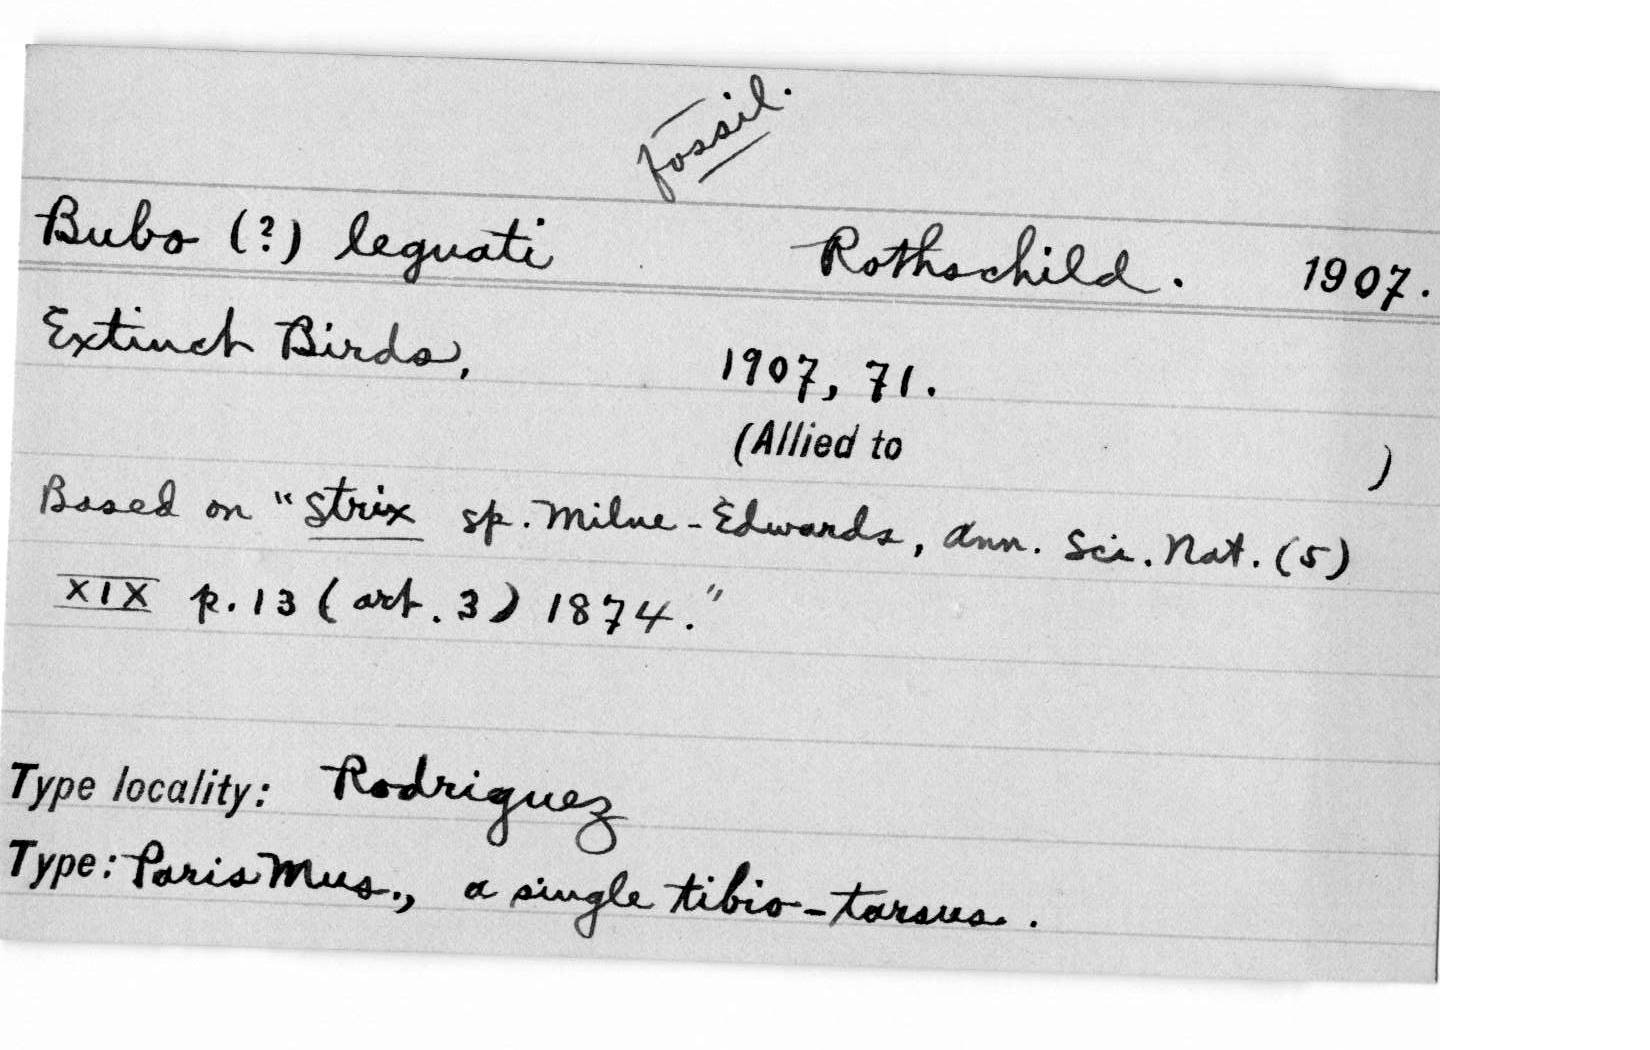 fossil.
Bubo (?) leguati Rothschild. 1907.
Extinct Birds, 1907, 71.
(Allied to )
Based on "Strix sp. Milne-Edwards, Ann. Sci. Nat. (5)
XIX p. 13 (art. 3) 1874."
Type locality: Rodriguez
Type: Paris Mus., a single tibio-tarsus.